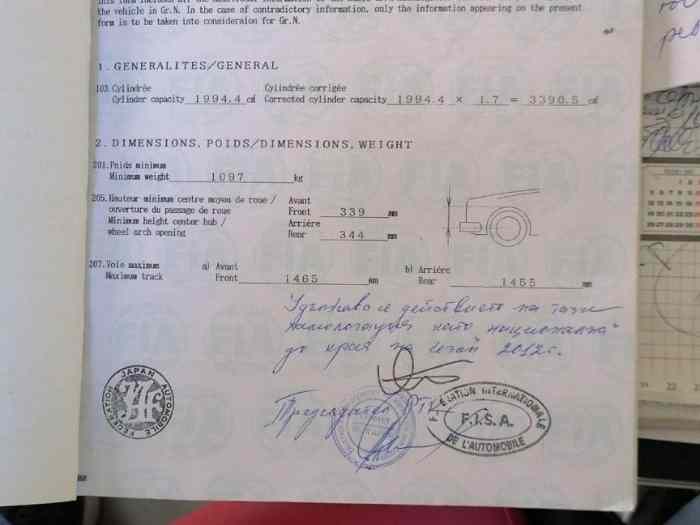 the vehicle in Gr.N. In the case of contradictory information, only the information appearing on the present
form is to be taken into consideraion for Gr.N.
1. GENERALITES/GENERAL
103. Cylindrée Cylindrée corrigée
Cylinder capacity 1994.4 cm³ Corrected cylinder capacity 1994.4 × 1.7 = 3390.5 cm³
2. DIMENSIONS, POIDS/DIMENSIONS, WEIGHT
201. Poids minimum
Minimum weight 1097 kg
205. Hauteur minimum centre moyeu de roue / Avant
ouverture du passage de roue Front 339 mm
Minimum height center hub / Arrière
wheel arch opening Rear 344 mm
207. Voie maximum a) Avant b) Arrière
Maximum track Front 1465 mm Rear 1455 mm
на тази
хомологация като национална
до края на 2012г.
Председател
JAPAN AUTOMOBILE FEDERATION
JAF
FÉDÉRATION INTERNATIONALE
F.I.S.A.
DE L'AUTOMOBILE